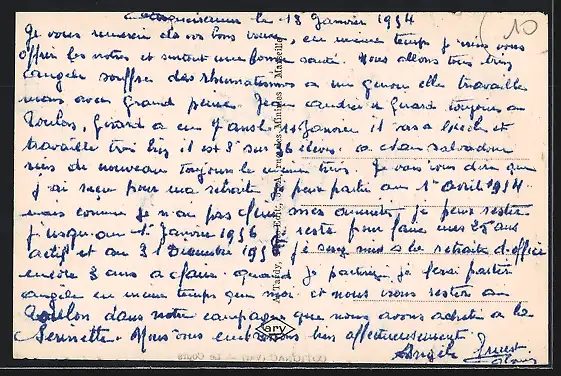 le 18 Janvier 1954
Je vous remercie de vos bons vœux, en même temps je viens vous
offrir les notres et surtout une bonne santé. Nous allons tous bien
Angèle souffre des rhumatismes a un genou elle travaille
mais avec grand peine. Jean, Andrée et Gérard toujours au
Toulon, Gérard a eu 7 ans le 15 Janvier il va a l'école et
travaille très bien il est 3e sur 36 élèves. a chau salvadour
rien de nouveau toujours le même train. Je vais vous dire que
j'ai reçu pour ma retraite, je peux partir au 1er Avril 1954
mais comme je n'ai pas mes années je peux rester
jusqu'au 1er Janvier 1956 reste pour faire mes 25 ans
actif et au 31 Décembre 195 je serez mis a la retraite d'office
encore 2 ans a faire. quand je partirai je ferai partir
Angèle en même temps que moi. et nous irons rester au
Toulon dans notre campagne que nous avons acheté a la
Serinette. Nous vous embrassons bien affectueusement
Angèle Ernest
10
Tardy, Marseille
ary